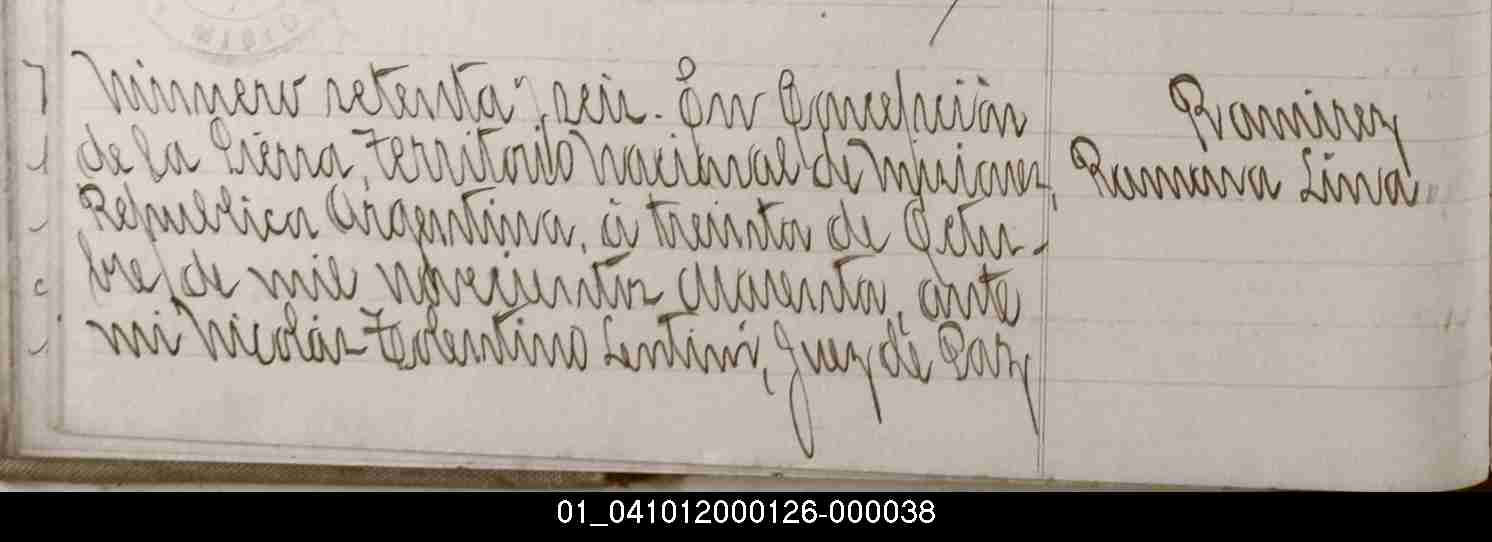 Número setenta y seis. En Concepción
de la Sierra, Territorio Nacional de Misiones,
República Argentina, á treinta de Octu-
bre de mil novecientos cuarenta, ante
mi Nicolás Tolentino Lentini, Juez de Paz
Ramirez
Ramona Lina
01_041012000126-000038